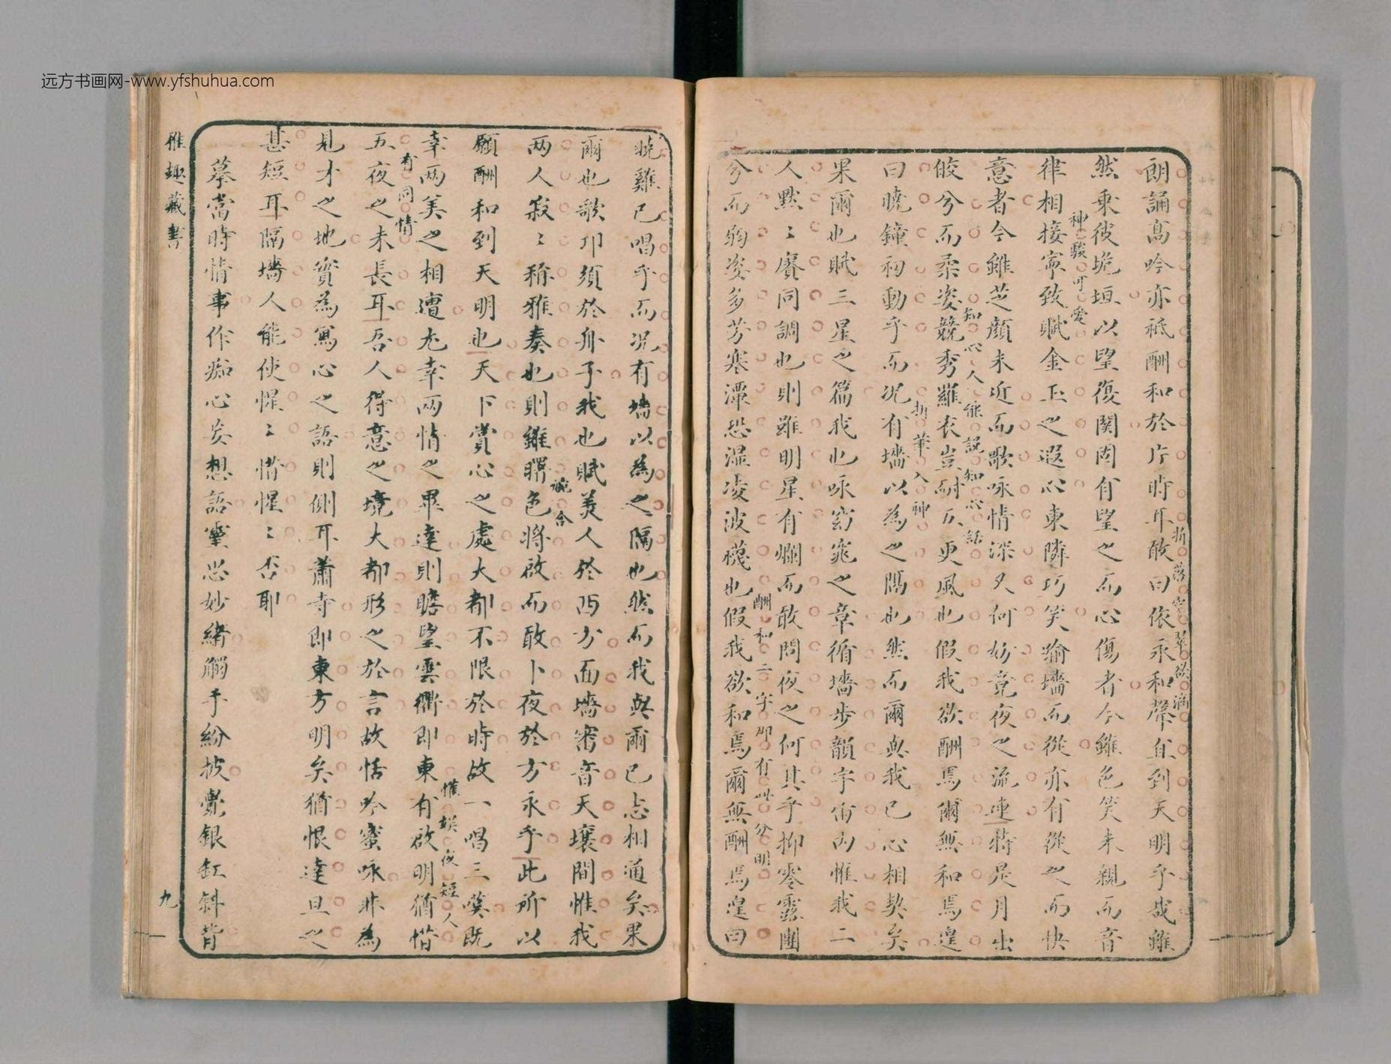 远方书画网-www.yfshuhua.com
朗誦高吟亦祗酬和於片時耳敢曰依永和聲直到天明乎哉雖
然乘彼垝垣以望復関固有望之而心傷者今雖色笑未親而音
律相接寧致賦金玉之遐心東隣巧笑踰墻而從亦有從之而快
意者今雖芝顏未近而歌咏情深又何妨竟夜之流連蔣是月出
皎兮而柔姿競秀羅衣豈耐五更風也假我欲酬焉爾無和焉遑
曰曉鐘初動乎而况有墻以為之隔也然而爾與我已心相契矣
果爾也賦三星之篇我也咏窈窕之章循墻步韻宇宙内惟我二
人默〻賡同調也則雖明星有爛而敢問夜之何其乎抑零露團
兮而夠姿多芳寒潭恐湿凌波襪也假我欲和焉爾無酬焉遑曰
折落空
神駿可愛
知心人能説知心話
折華入神
酬和二字却有此分明
曉雞已唱乎而况有墻以為之隔也然而我與爾已志相通矣果
爾也歌卭須於舟子我也賦美人於西方面墻審音天壤間惟我
兩人寂〻稱雅奏也則雖曙色將啟而敢卜夜於方永乎此所以
願酬和到天明也天下賞心之處大都不限於時故一唱三嘆既
幸兩美之相遭尤幸兩情之畢達則瞻望雲衢即東有啟明猶惜
五夜之未長耳吾人得意之境大都形之於言故恬吟蜜咏非為
見才之地實為寫心之語則側耳蕭寺即東方明矣猶恨達旦之
甚短耳隔墻人能使惺〻惜惺〻否耶
摹當時情事作痴心妄想語靈思妙緒觸手紛披覺銀缸斜背
詭合
惟娱夜短人
有同情
雅趣藏書
九